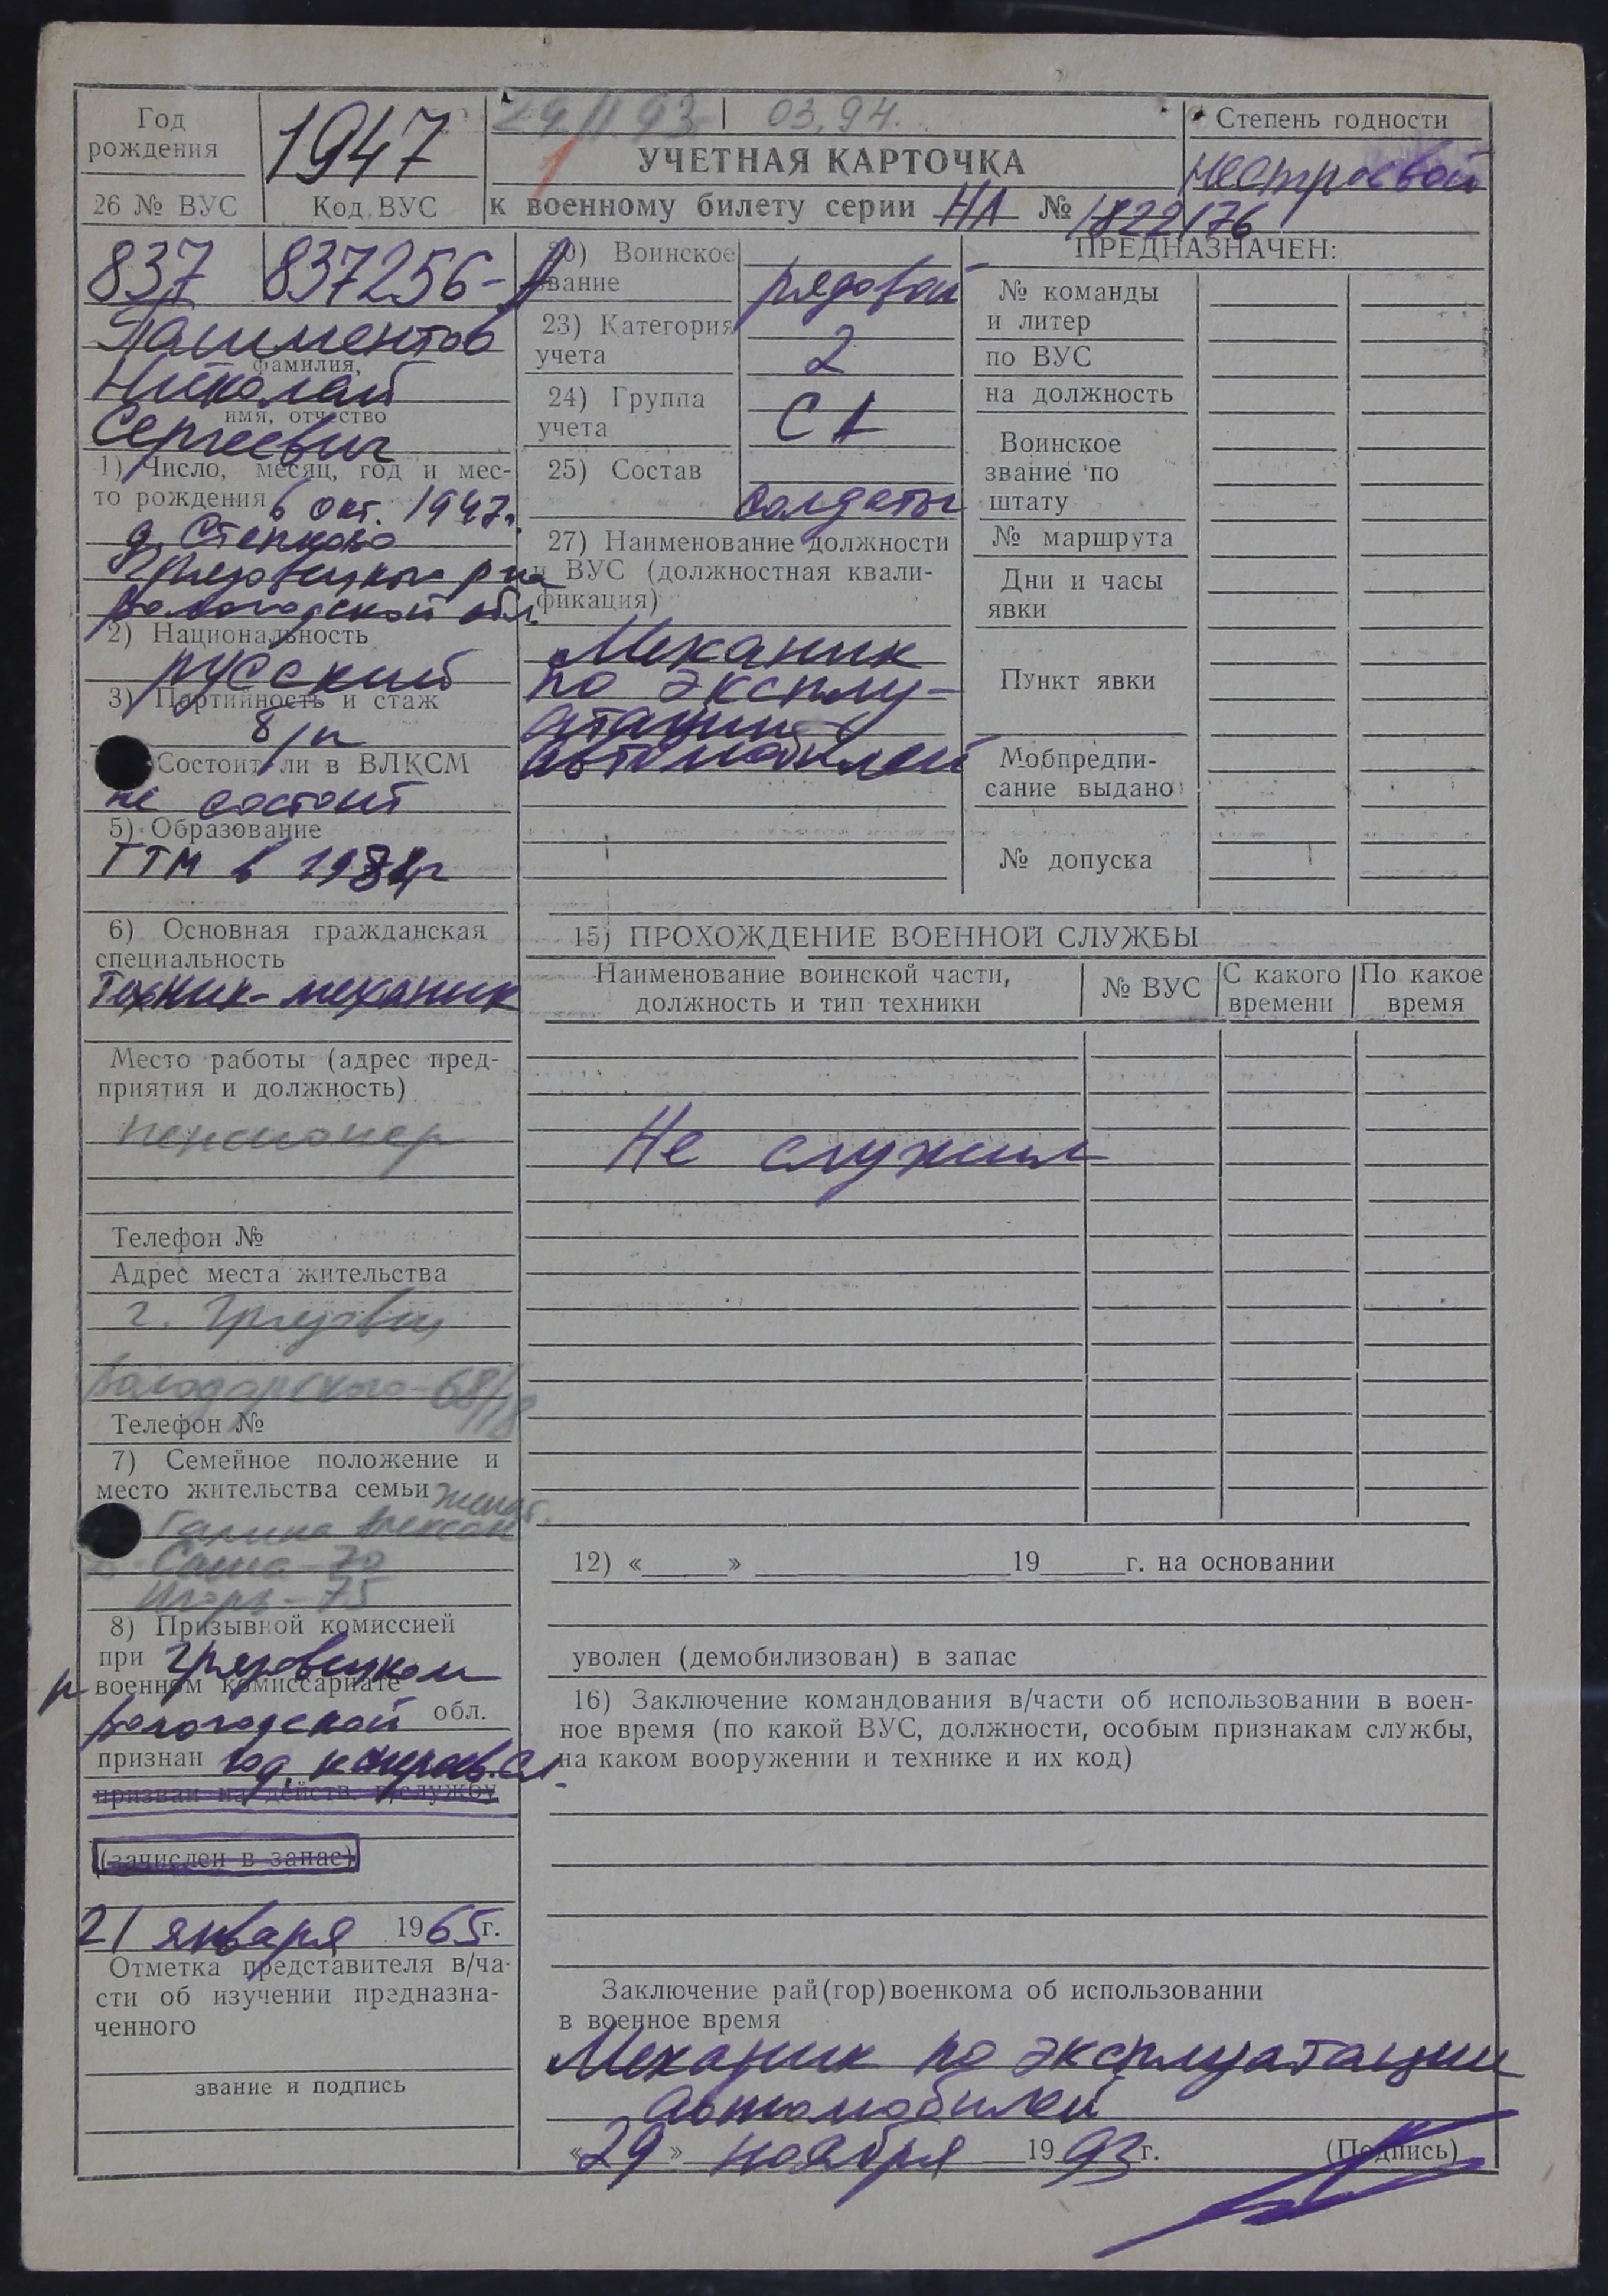 Год рождения
1947
29.11.93 | 03.94.
Степень годности
УЧЕТНАЯ КАРТОЧКА
нестроевой
26 № ВУС
Код ВУС
к военному билету серии НЛ № 1822176
837
837256-А
Пашментов
фамилия,
Николай
имя, отчество
Сергеевич
1) Число, месяц, год и мес-
то рождения 6 окт. 1947г.
д. Степково
Грязовецкого р-на
Вологодской обл.
2) Национальность
русский
3) Партийность и стаж
б/п
Состоит ли в ВЛКСМ
не состоит
5) Образование
ГТМ в
6) Основная гражданская
специальность
Техник-механик
Место работы (адрес пред-
приятия и должность)
пенсионер
Телефон №
Адрес места жительства
г. Грязовец
Володарского-68/18
Телефон №
7) Семейное положение и
место жительства семьи женат.
Галина Алексан
Саша-70
Игорь-75
8) Призывной комиссией
при Грязовецком
р военном комиссариате
Вологодской обл.
признан год. к нестроев. сл.
призван на действ. в/службу
(зачислен в запас)
21 января 1965г.
Отметка представителя в/ча-
сти об изучении предназна-
ченного
звание и подпись
20) Воинское
звание
рядовой
23) Категория
учета
2
24) Группа
учета
СА
25) Состав
солдаты
27) Наименование должности
и ВУС (должностная квали-
фикация)
Механик
по эксплу-
атации
автомобилей
ПРЕДНАЗНАЧЕН:
№ команды
и литер
по ВУС
на должность
Воинское
звание по
штату
№ маршрута
Дни и часы
явки
Пункт явки
Мобпредпи-
сание выдано
№ допуска
15) ПРОХОЖДЕНИЕ ВОЕННОЙ СЛУЖБЫ
Наименование воинской части,
должность и тип техники
№ ВУС
С какого
времени
По какое
время
Не служил
12) «_____» _______________ 19_____г. на основании
уволен (демобилизован) в запас
16) Заключение командования в/части об использовании в воен-
ное время (по какой ВУС, должности, особым признакам службы,
на каком вооружении и технике и их код)
Заключение рай(гор)военкома об использовании
в военное время
Механик по эксплуатации
автомобилей
«29» ноября 1993г. (Подпись)